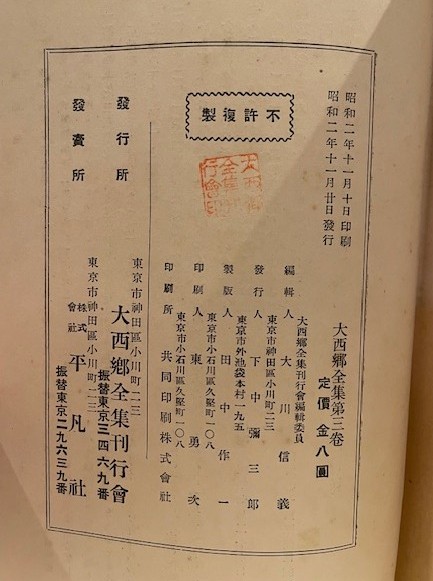 昭和二年十一月十日印刷
昭和二年十一月廿日發行
不許複製
大西鄕全集刊行會印
大西鄕全集第三卷
定價金八圓
大西鄕全集刊行會編輯委員
編輯人 大川信義
東京市神田區小川町二三
發行人 下中彌三郎
東京市外池袋本村一九五
製版人 田中作一
東京市小石川區久堅町一〇八
印刷人 東勇次
東京市小石川區久堅町一〇八
印刷所 共同印刷株式會社
東京市神田區小川町二三
發行所 大西鄕全集刊行會
振替東京三四六九番
東京市神田區小川町二三
發賣所 株式會社 平凡社
振替東京二九六三九番